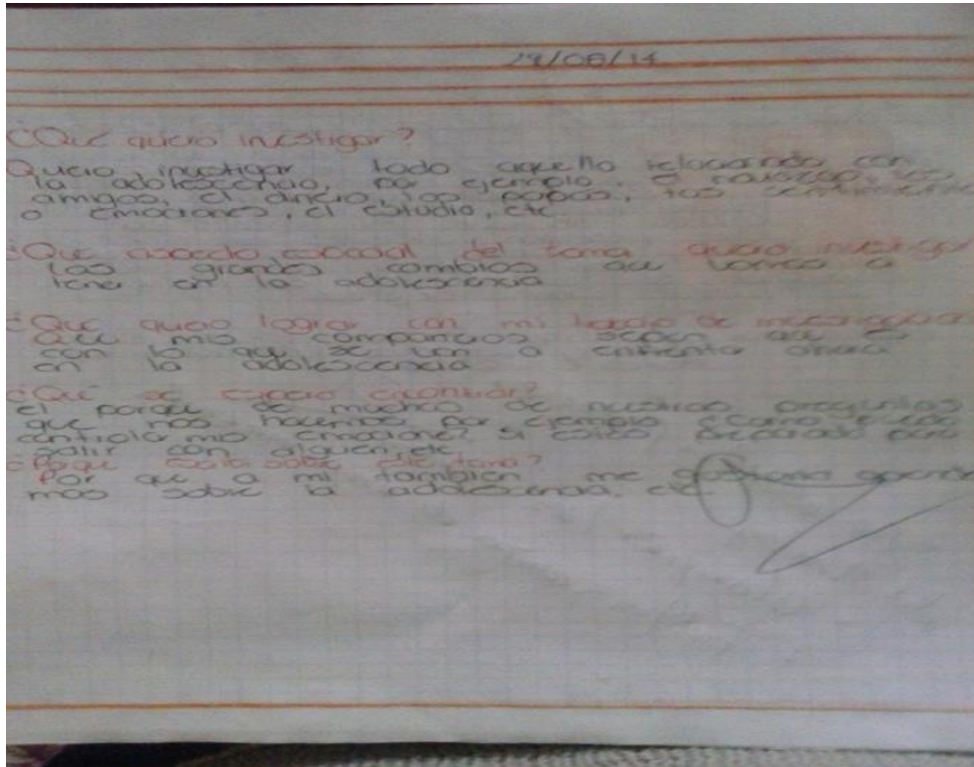 29/08/14
¿Qué quiero investigar?
Quiero investigar todo aquello relacionado con
la adolescencia, por ejemplo, el noviazgo, los
amigos, el dinero, los papás, tus sentimientos
o emociones, el estudio, etc
¿Que aspecto especial del tema quiero investigar
Los grandes cambios que vamos a
tener en la adolescencia
¿Que quiero lograr con mi trabajo de investigación
Que mis compañeros sepan que es
con lo que se van a enfrentar ahora
en la adolescencia
¿Qué se espera encontrar?
El porque de muchas de nuestras preguntas
que nos hacemos por ejemplo ¿Como puedo
controlar mis emociones? si estoy preparado para
salir con alguien, etc
¿Porque sobre este tema?
Por que a mi tambien me gustaria aprender
mas sobre la adolescencia, etc